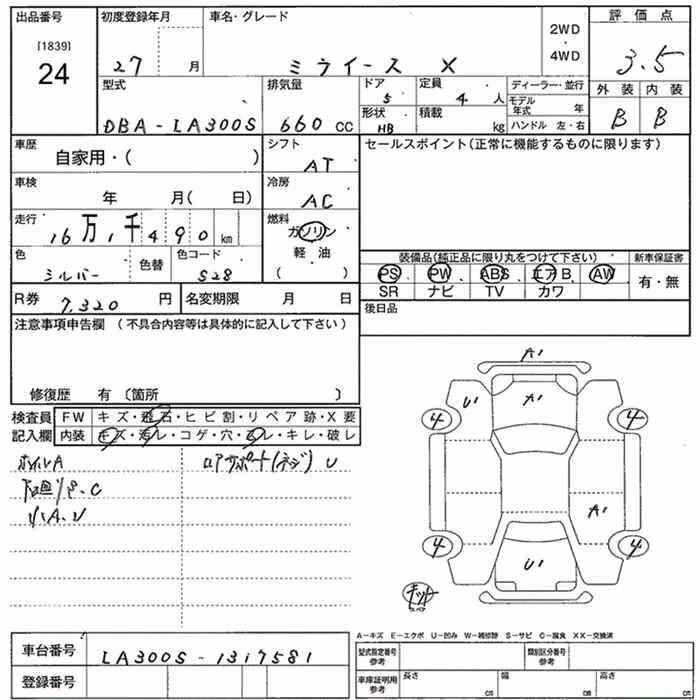 出品番号 初度登録年月 車名・グレード 2WD・4WD 評価点
[1839]
24 27 月 ミライース X 3.5
型式 排気量 ドア 定員 ディーラー・並行 外装 内装
DBA-LA300S 660 CC 5 4 人 モデル年式 年 B B
形状 積載
HB kg ハンドル 左・右
車歴 シフト セールスポイント(正常に機能するものに限ります)
自家用・( ) AT
車検 冷房
年 月( 日) AC
走行 燃料
16万1千490 km ガソリン
色 色替 色コード 軽油
シルバー S28 ( )
装備品(純正品に限り丸をつけて下さい) 新車保証書
PS PW ABS エアB AW 有・無
SR ナビ TV カワ
R券 7,320 円 名変期限 月 日
後日品
注意事項申告欄 (不具合内容等は具体的に記入して下さい)
修復歴 有〔箇所 〕
検査員 FW キズ・飛石・ヒビ割・リペア跡・X要
記入欄 内装 キズ・汚レ・コゲ・穴・スレ・キレ・破レ
ホイルA リアサポート(ネジ) U
下廻りS.C
小A.U
A1
U1 A1
4 4
A1
4 4
U1
キット
スペア
A-キズ E-エクボ U-凹み W-補修跡 S-サビ C-腐食 XX-交換済
車台番号 LA300S-1317581
登録番号
型式指定番号 参考 類別区分番号 参考
車庫証明用 参考 長さ cm 幅 cm 高さ cm